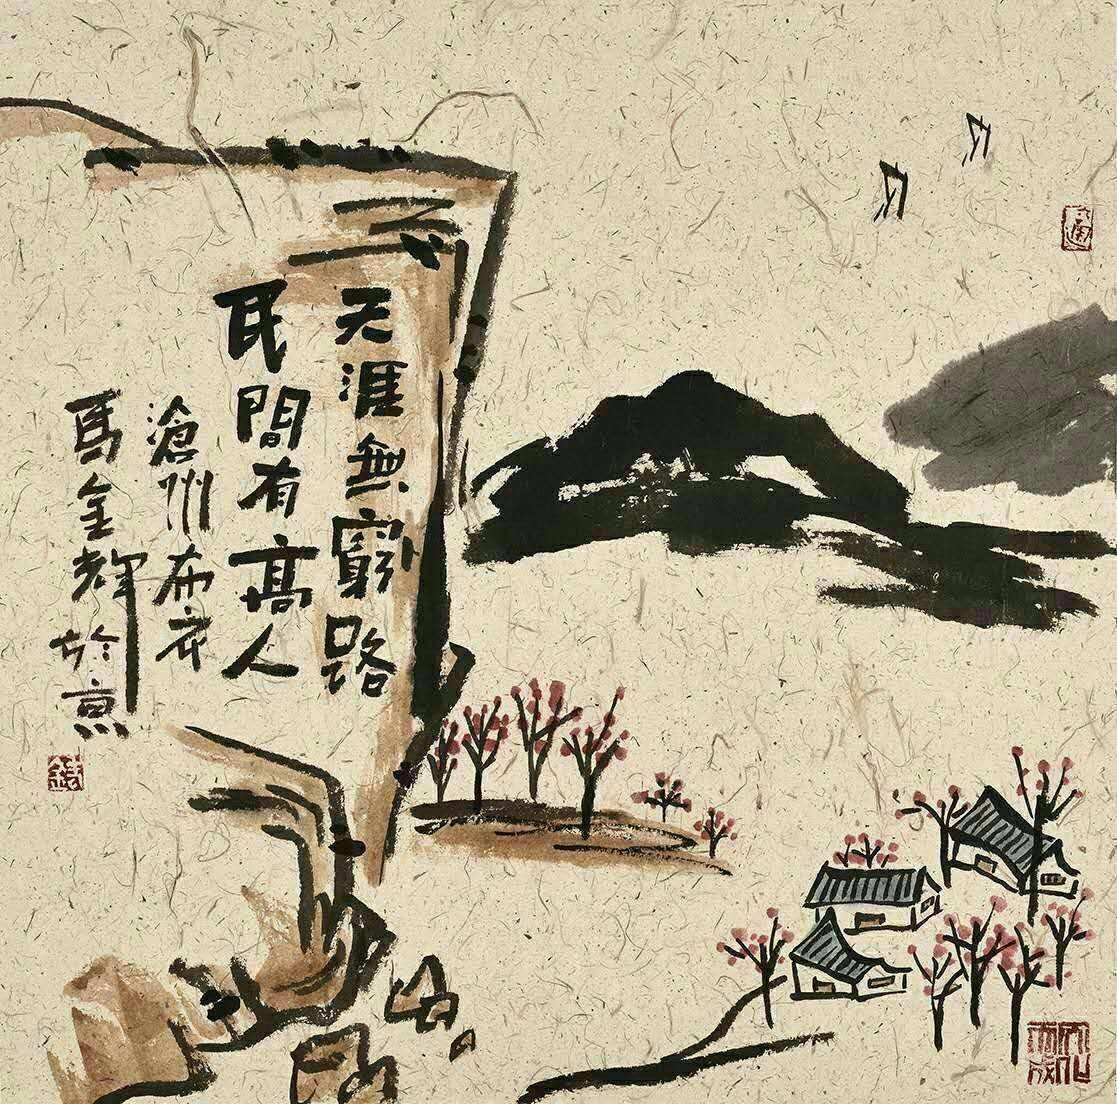 天涯無窮路
民間有高人
滄州布衣
馬金輝於京